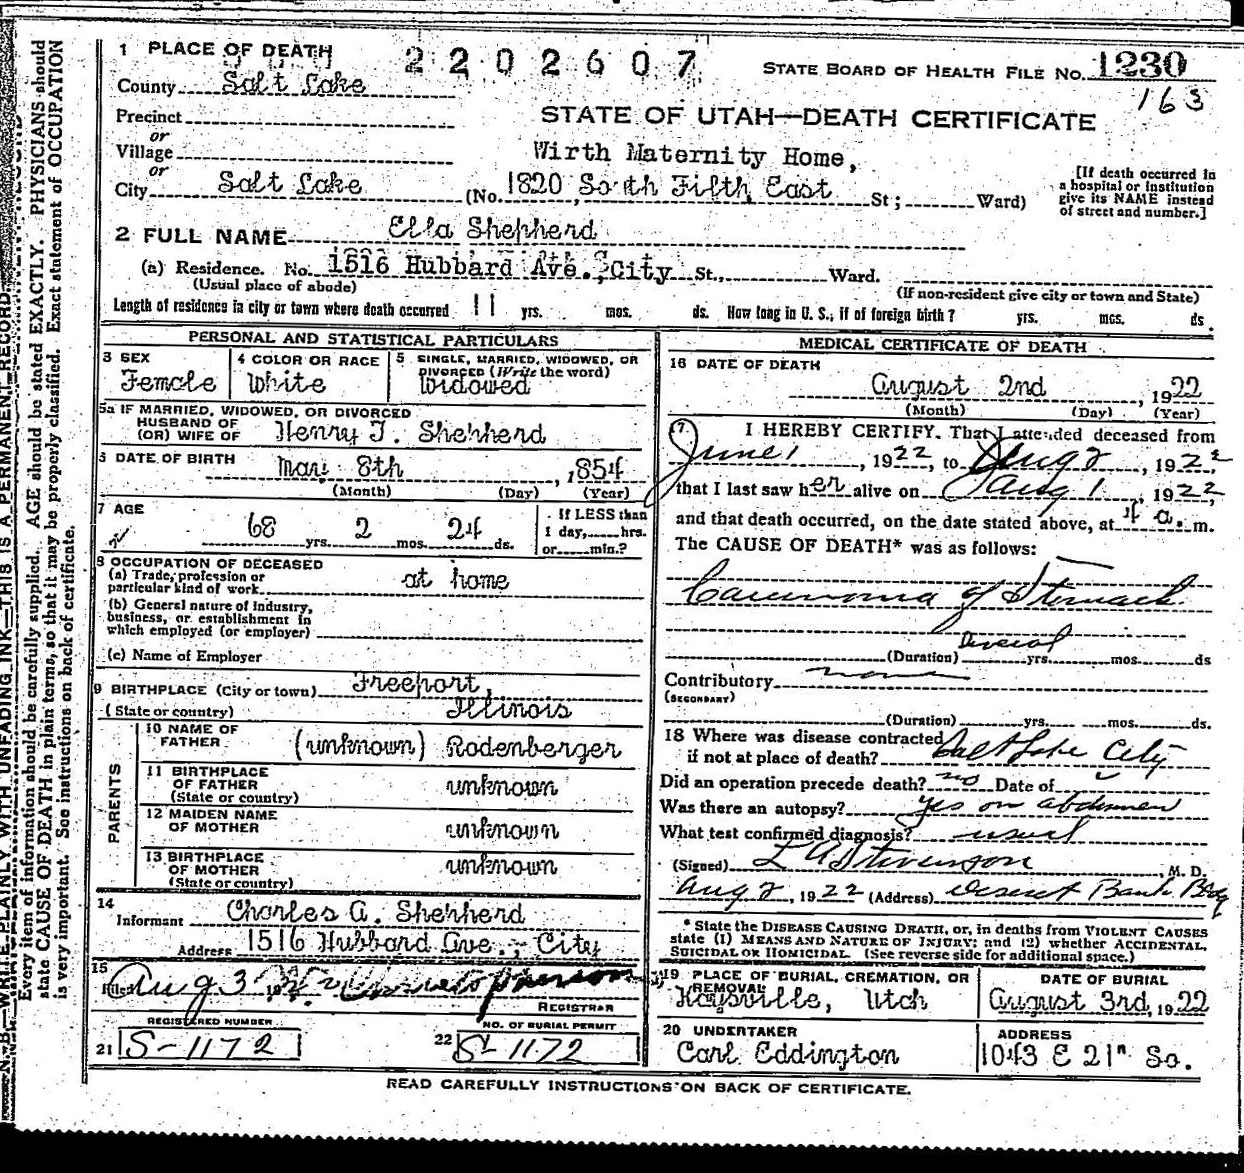 1 PLACE OF DEATH
2202607
STATE BOARD OF HEALTH FILE No. 1230
163
County Salt Lake
STATE OF UTAH—DEATH CERTIFICATE
Precinct
or
Village
Wirth Maternity Home,
or
City Salt Lake (No. 1820 South Fifth East St; Ward)
[If death occurred in
a hospital or institution
give its NAME instead
of street and number.]
2 FULL NAME Ella Shepherd
(a) Residence. No. 1516 Hubbard Ave., City St., Ward.
(Usual place of abode)
(If non-resident give city or town and State)
Length of residence in city or town where death occurred 11 yrs. mos. ds. How long in U. S., if of foreign birth? yrs. mos. ds.
PERSONAL AND STATISTICAL PARTICULARS
3 SEX
Female
4 COLOR OR RACE
White
5 SINGLE, MARRIED, WIDOWED, OR
DIVORCED (Write the word)
Widowed
5a IF MARRIED, WIDOWED, OR DIVORCED
HUSBAND OF
(OR) WIFE OF Henry J. Shepherd
6 DATE OF BIRTH May 8th, 1854
(Month) (Day) (Year)
7 AGE
68 yrs. 2 mos. 24 ds.
If LESS than
1 day, hrs.
or min.?
8 OCCUPATION OF DECEASED
(a) Trade, profession or
particular kind of work at home
(b) General nature of industry,
business, or establishment in
which employed (or employer)
(c) Name of Employer
9 BIRTHPLACE (City or town) Freeport,
(State or country) Illinois
PARENTS
10 NAME OF
FATHER (unknown) Rodenberger
11 BIRTHPLACE
OF FATHER
(State or country) unknown
12 MAIDEN NAME
OF MOTHER unknown
13 BIRTHPLACE
OF MOTHER
(State or country) unknown
14
Informant Charles A. Shepherd
Address 1516 Hubbard Ave., City
15
Filed Aug 3 Christopherson
REGISTRAR
REGISTERED NUMBER
21 S-1172
NO. OF BURIAL PERMIT
22 S-1172
MEDICAL CERTIFICATE OF DEATH
16 DATE OF DEATH
August 2nd, 1922
(Month) (Day) (Year)
17 I HEREBY CERTIFY, That I attended deceased from
June 1, 1922, to Aug 2, 1922,
that I last saw her alive on Aug 1, 1922,
and that death occurred, on the date stated above, at 4 a. m.
The CAUSE OF DEATH* was as follows:
Carcinoma of Stomach
several
(Duration) yrs. mos. ds
Contributory none
(SECONDARY)
(Duration) yrs. mos. ds.
18 Where was disease contracted
if not at place of death? Salt Lake City
Did an operation precede death? no Date of
Was there an autopsy? yes on abdomen
What test confirmed diagnosis? usual
(Signed) L A Stevenson, M. D.
Aug 2, 1922 (Address) Deseret Bank Bldg
* State the DISEASE CAUSING DEATH, or, in deaths from VIOLENT CAUSES
state (1) MEANS AND NATURE OF INJURY; and (2) whether ACCIDENTAL,
SUICIDAL OR HOMICIDAL. (See reverse side for additional space.)
19 PLACE OF BURIAL, CREMATION, OR
REMOVAL
Kaysville, Utah
DATE OF BURIAL
August 3rd, 1922
20 UNDERTAKER
Carl Eddington
ADDRESS
1043 E 21" So.
READ CAREFULLY INSTRUCTIONS ON BACK OF CERTIFICATE.
N. B.—WRITE PLAINLY, WITH UNFADING INK—THIS IS A PERMANENT RECORD
Every item of information should be carefully supplied. AGE should be stated EXACTLY. PHYSICIANS should
state CAUSE OF DEATH in plain terms, so that it may be properly classified. Exact statement of OCCUPATION
is very important. See instructions on back of certificate.